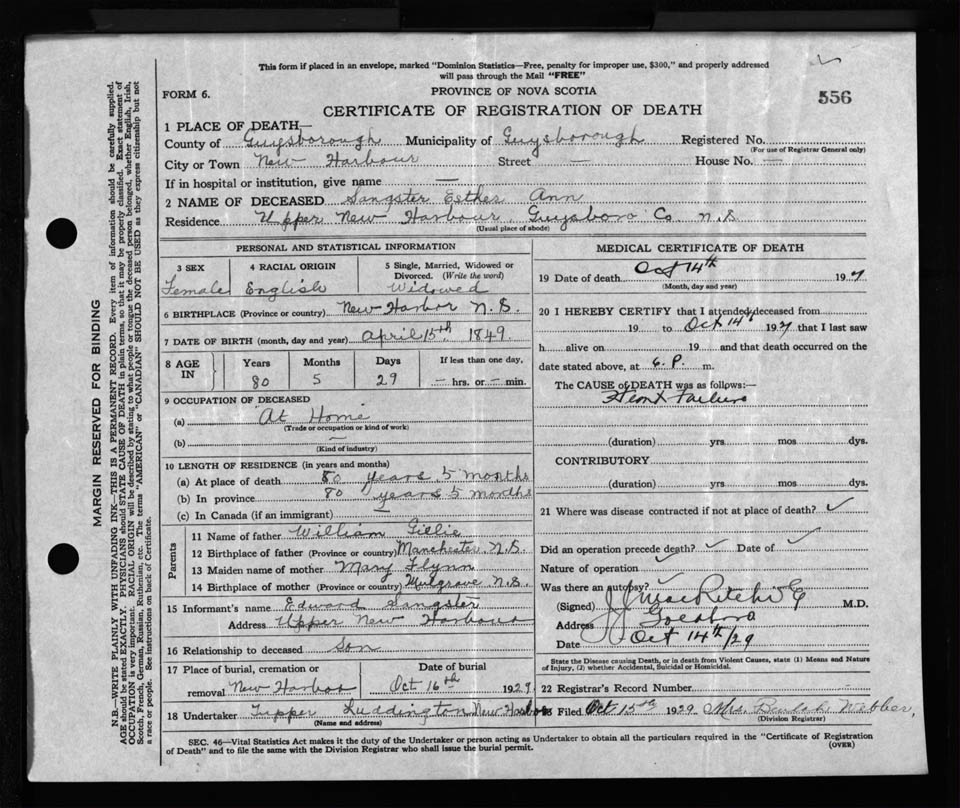 This form if placed in an envelope, marked "Dominion Statistics—Free, penalty for improper use, $300," and properly addressed
will pass through the Mail "FREE"
FORM 6.
PROVINCE OF NOVA SCOTIA
556
CERTIFICATE OF REGISTRATION OF DEATH
1 PLACE OF DEATH—
County of Guysborough Municipality of Guysborough Registered No.
(For use of Registrar General only)
City or Town New Harbour Street — House No. —
If in hospital or institution, give name —
2 NAME OF DECEASED Sangster Esther Ann
Residence Upper New Harbour Guysboro Co. N.S.
(Usual place of abode)
PERSONAL AND STATISTICAL INFORMATION
3 SEX 4 RACIAL ORIGIN 5 Single, Married, Widowed or
Divorced. (Write the word)
Female English Widowed
6 BIRTHPLACE (Province or country) New Harbor N.S.
7 DATE OF BIRTH (month, day and year) April 15th 1849.
8 AGE IN Years Months Days If less than one day,
80 5 29 — hrs. or — min.
9 OCCUPATION OF DECEASED
(a) At Home
(Trade or occupation or kind of work)
(b) —
(Kind of industry)
10 LENGTH OF RESIDENCE (in years and months)
(a) At place of death 80 years 5 months
(b) In province 80 years 5 months
(c) In Canada (if an immigrant)
Parents
11 Name of father William Gillie
12 Birthplace of father (Province or country) Manchester N.S.
13 Maiden name of mother Mary Flynn
14 Birthplace of mother (Province or country) Mulgrave N.S.
15 Informant's name Edward Sangster
Address Upper New Harbour
16 Relationship to deceased Son
17 Place of burial, cremation or Date of burial
removal New Harbor Oct 16th 1929.
18 Undertaker Tupper Luddington New Harbor
(Name and address)
MEDICAL CERTIFICATE OF DEATH
19 Date of death Oct 14th 192
(Month, day and year)
20 I HEREBY CERTIFY that I attended deceased from
19 to Oct 14th 192 that I last saw
h alive on 19 and that death occurred on the
date stated above, at 6.P. m.
The CAUSE of DEATH was as follows:—
Heart Failure
(duration) yrs. mos dys.
CONTRIBUTORY
(duration) yrs. mos dys.
21 Where was disease contracted if not at place of death?
Did an operation precede death? Date of
Nature of operation
Was there an autopsy?
(Signed) MacRitchie M.D.
Address Goldboro
Date Oct 14th/29
State the Disease causing Death, or in death from Violent Causes, state (1) Means and Nature
of Injury, (2) whether Accidental, Suicidal or Homicidal.
22 Registrar's Record Number
Filed Oct 15th 1929 Mrs. Beulah Webber,
(Division Registrar)
SEC. 46—Vital Statistics Act makes it the duty of the Undertaker or person acting as Undertaker to obtain all the particulars required in the "Certificate of Registration
of Death" and to file the same with the Division Registrar who shall issue the burial permit.
(OVER)
MARGIN RESERVED FOR BINDING
N.B.—WRITE PLAINLY WITH UNFADING INK—THIS IS A PERMANENT RECORD. Every item of information should be carefully supplied.
AGE should be stated EXACTLY. PHYSICIANS should STATE CAUSE OF DEATH in plain terms, so that it may be properly classified. Exact statement of
OCCUPATION is very important. RACIAL ORIGIN will be described by stating to what people or tongue the deceased person belonged, whether English, Irish,
Scotch, French, German, Russian, Ruthenian, etc. The terms "AMERICAN" or "CANADIAN" SHOULD NOT BE USED as they express citizenship but not
a race or people. See instructions on back of Certificate.